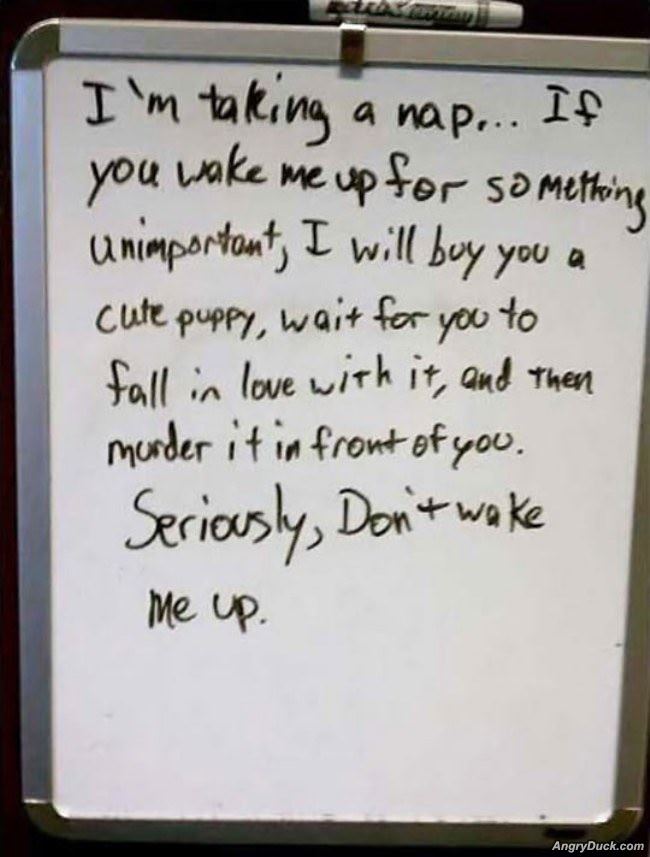 I'm taking a nap... If
you wake me up for something
unimportant, I will buy you a
cute puppy, wait for you to
fall in love with it, and then
murder it in front of you.
Seriously, Don't wake
me up.
AngryDuck.com